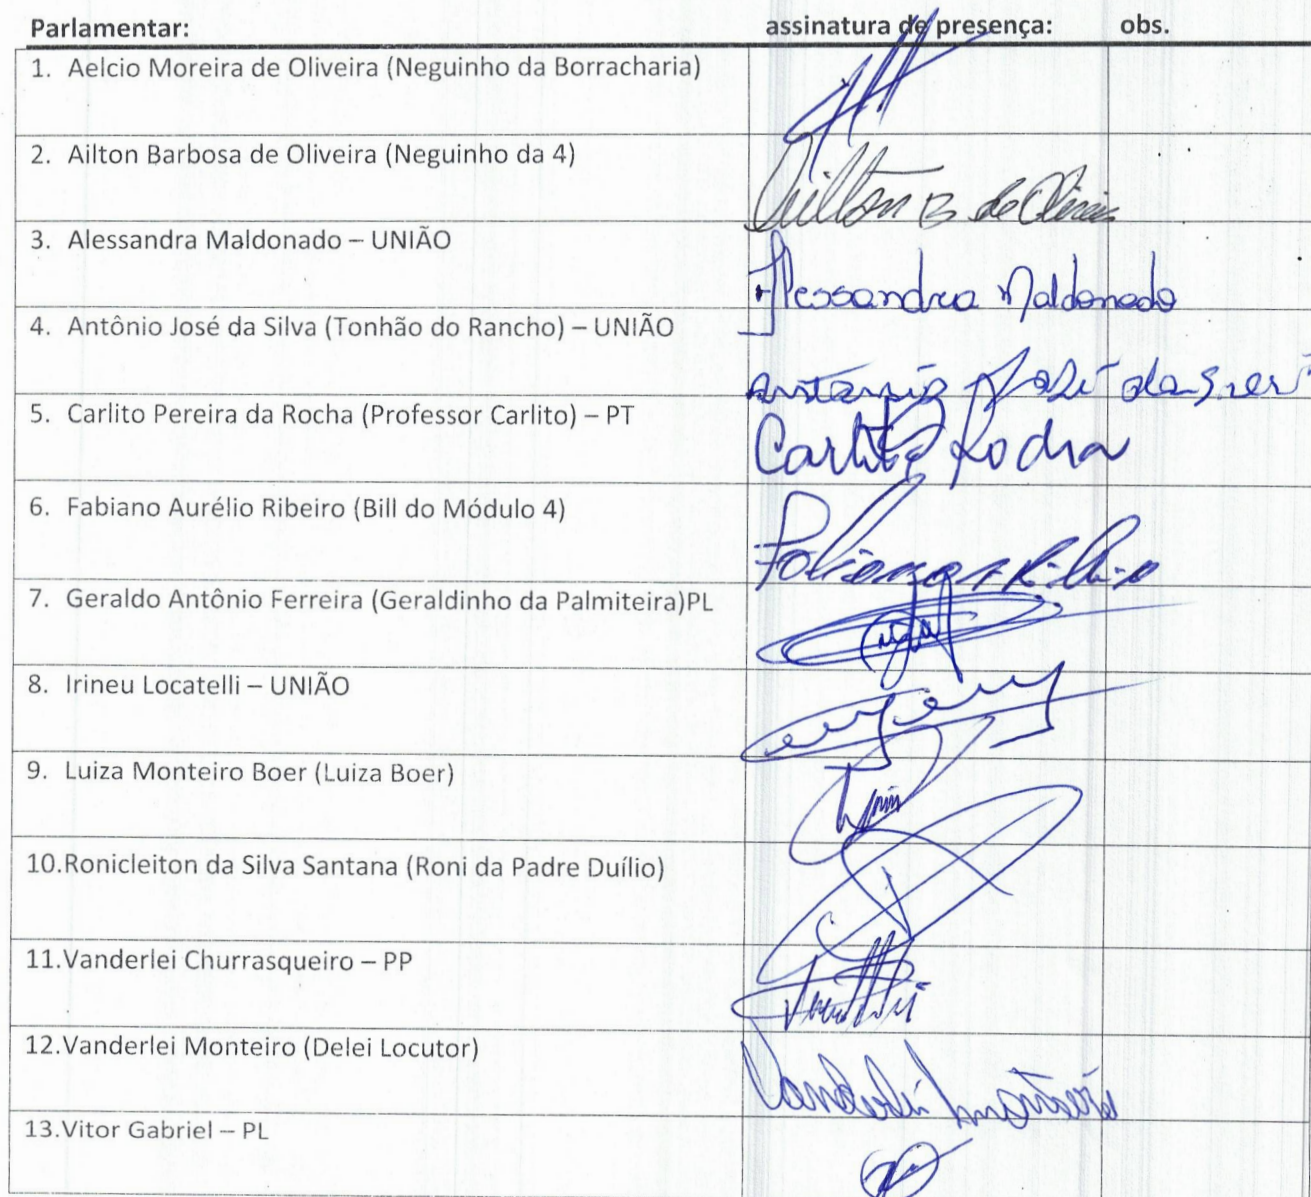 Parlamentar: assinatura de presença: obs.
1. Aelcio Moreira de Oliveira (Neguinho da Borracharia)
2. Ailton Barbosa de Oliveira (Neguinho da 4)
Ailton B de Oliveira
3. Alessandra Maldonado – UNIÃO
Alessandra Maldonado
4. Antônio José da Silva (Tonhão do Rancho) – UNIÃO
Antônio José da
5. Carlito Pereira da Rocha (Professor Carlito) – PT
Carlito Rocha
6. Fabiano Aurélio Ribeiro (Bill do Módulo 4)
7. Geraldo Antônio Ferreira (Geraldinho da Palmiteira)PL
8. Irineu Locatelli – UNIÃO
9. Luiza Monteiro Boer (Luiza Boer)
10.Ronicleiton da Silva Santana (Roni da Padre Duílio)
11.Vanderlei Churrasqueiro – PP
12.Vanderlei Monteiro (Delei Locutor)
Vanderlei Monteiro
13.Vitor Gabriel – PL